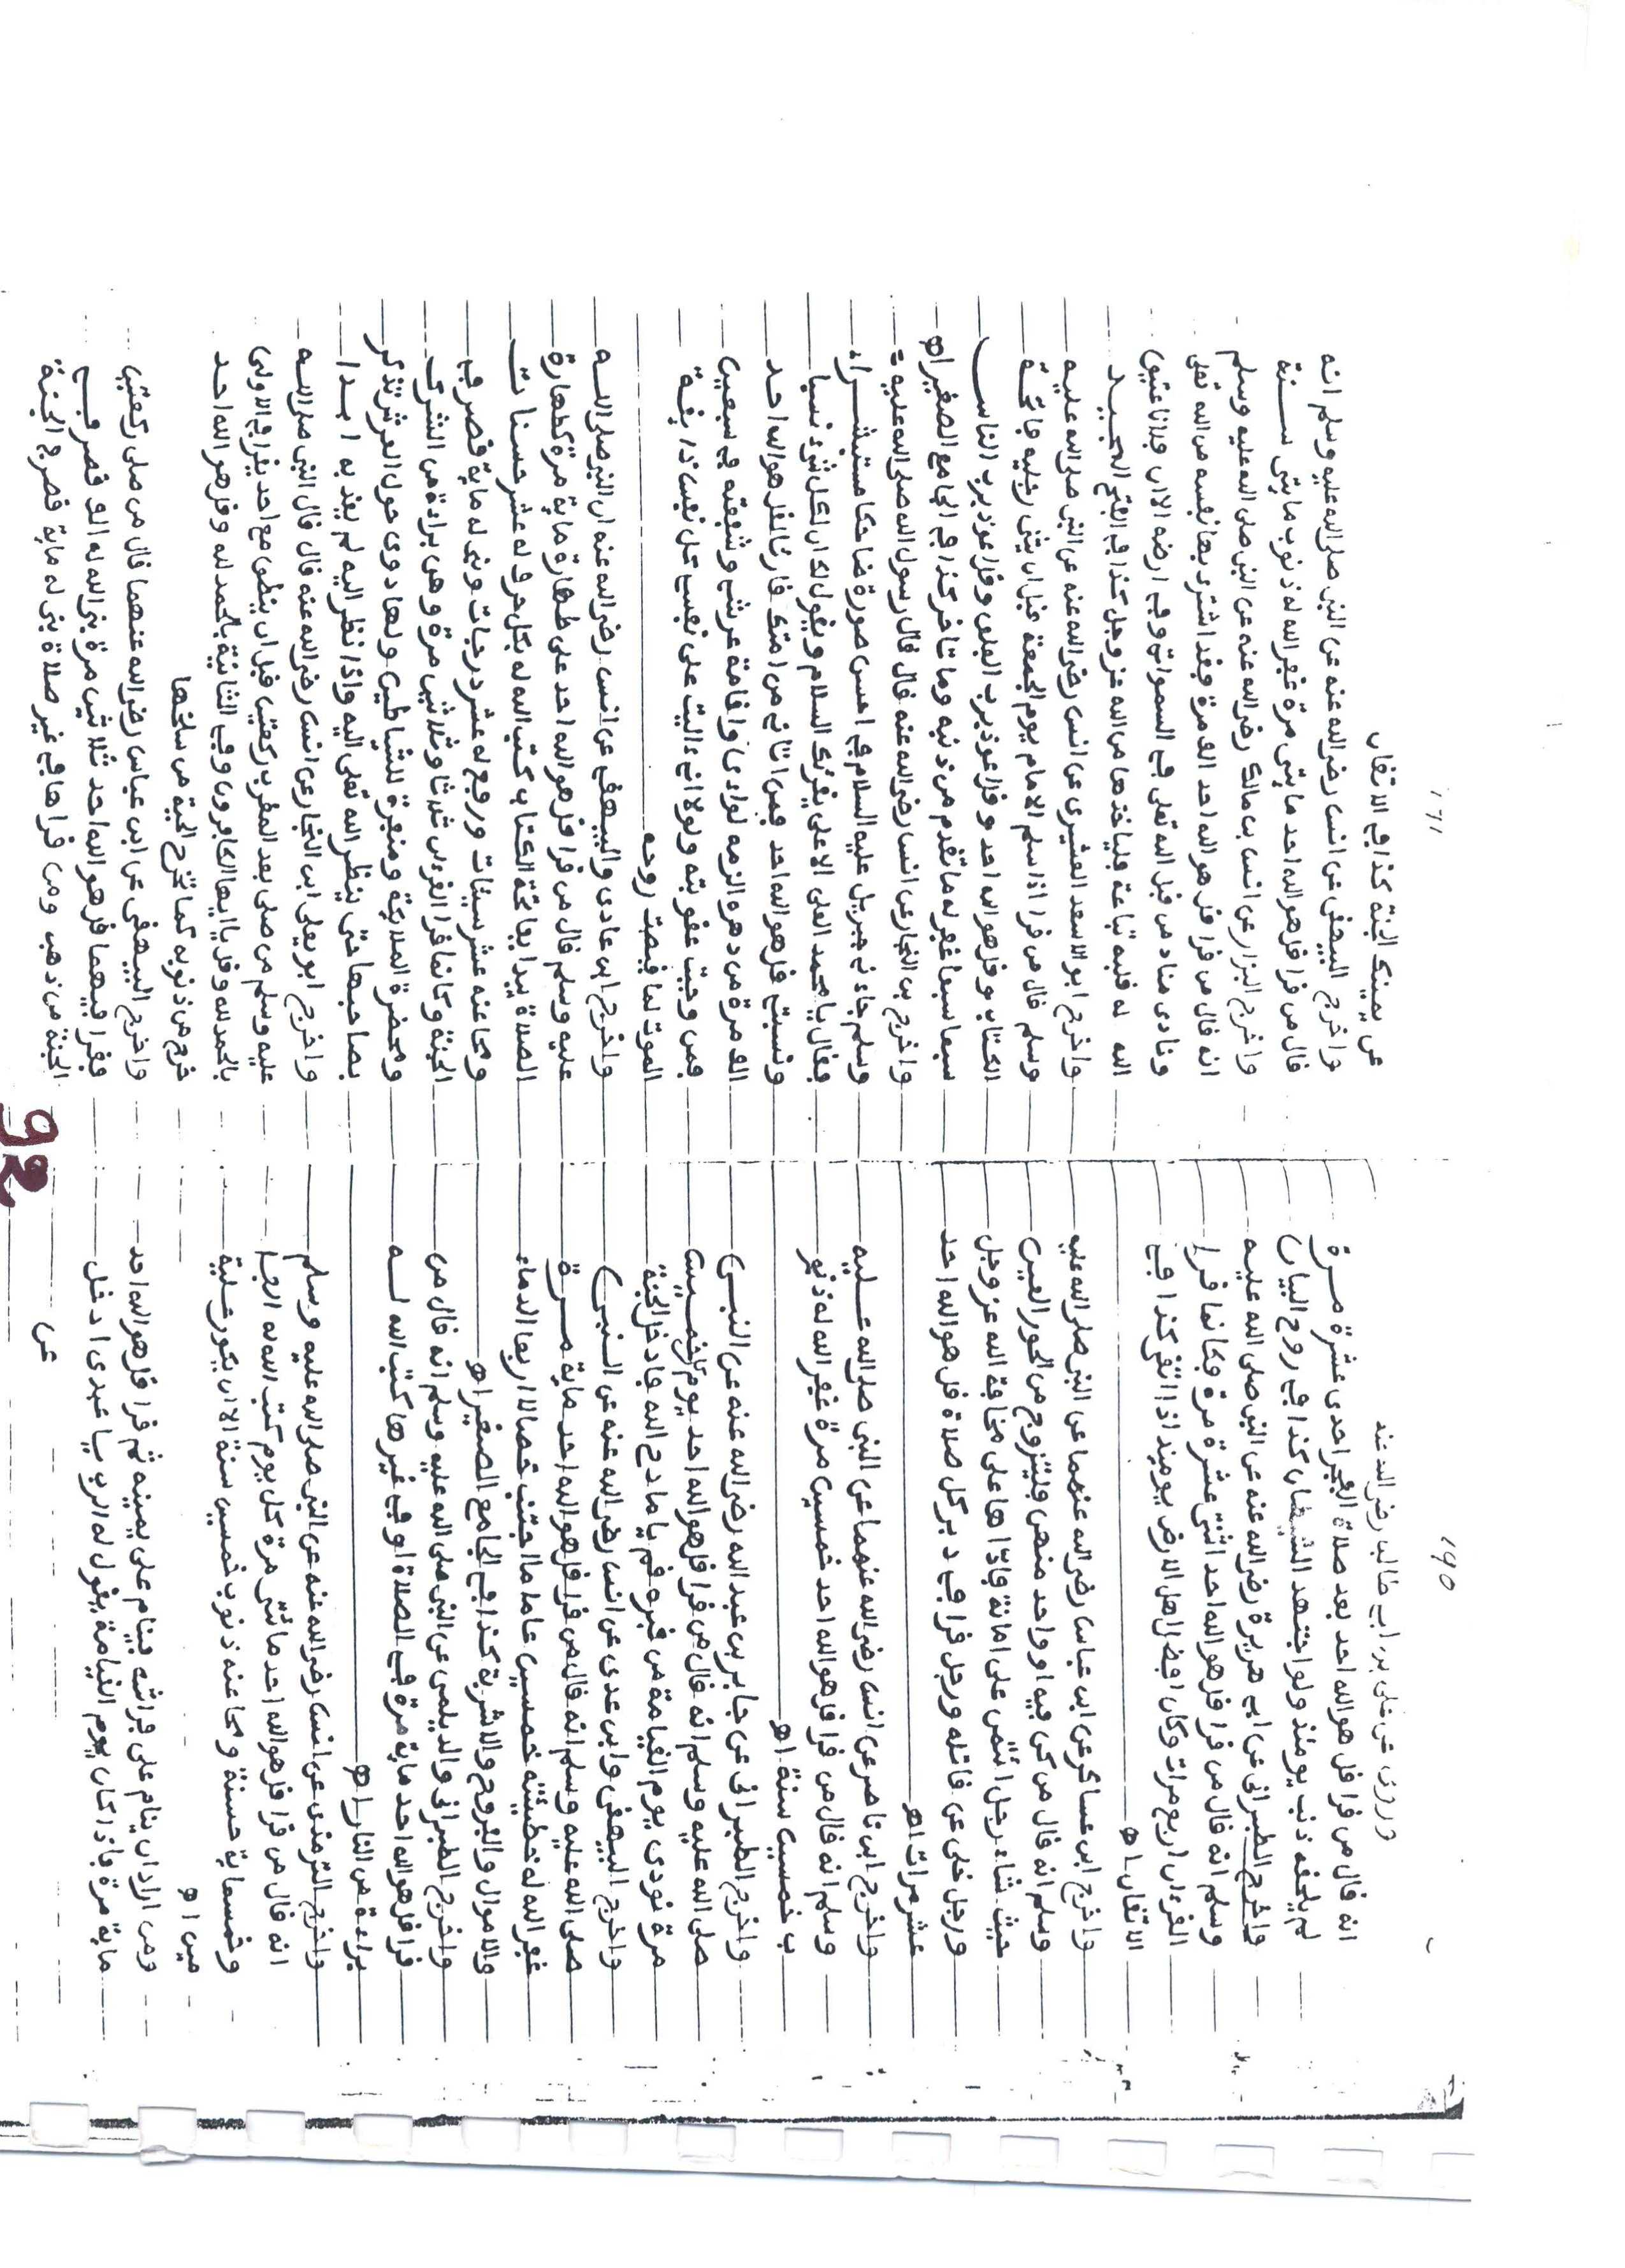 190
وروى عن على بن ابى طالب رضى الله عنه
انه قال من قرا قل هو الله احد بعد صلاة الفجر احدى عشرة مرة
لم يلحقه ذنب يومئذ ولو اجتهد الشيطان كذا فى روح البيان
واخرج الطبرانى عن ابى هريرة رضى الله عنه عن النبى صلى الله عليه
وسلم انه قال من قرا قل هو الله احد اثنتى عشرة مرة فكانما قرا
القرءان اربع مرات وكان افضل اهل الارض يوميذ اذا اتقى كذا فى
الاتقان اه
واخرج ابن عساكر عن ابن عباس رضى الله عنهما عن النبى صلى الله عليه
وسلم انه قال من كن فيه او واحد منهن فليتزوج من الحور العين
حيث شاء رجل ائتمن على امانة فادّاها على مخافة الله عز وجل
ورجل خلى عن قاتله ورجل قرا فى دبر كل صلاة قل هو الله احد
عشر مرات اه
واخرج ابن ناصر عن انس رضى الله عنهما عن النبى صلى الله عليه
وسلم انه قال من قرا قل هو الله احد خمسين مرة غفر الله له ذنو
ب خمسين سنة اه
واخرج الطبرانى عن جابر بن عبد الله رضى الله عنه عن النبى
صلى الله عليه وسلم انه قال من قرا قل هو الله احد يوم خمسين
مرة نودى يوم القيامة من قبره قم يا مادح الله فادخل الجنة
واخرج البيهقى وابن عدى عن انس رضى الله عنه عن النبى
صلى الله عليه وسلم انه قال من قرا قل هو الله احد ماية مرة
غفر الله له خطيئته خمسين عاما ما اجتنب خصالا اربعا الدماء
والاموال والفروج والاشربة كذا فى الجامع الصغير اه
واخرج الطبرانى والديلمى عن النبى صلى الله عليه وسلم انه قال من
قرا قل هو الله احد ماية مرة فى الصلاة او فى غيرها كتب الله له
براءة من النار اه
واخرج الترمذى عن انس رضى الله عنه عن النبى صلى الله عليه وسلم
انه قال من قرا قل هو الله احد مائتى مرة كل يوم كتب الله له الفا
وخمسماية حسنة ومحا عنه ذنوب خمسين سنة الا ان يكون عليه
دين اه
ومن اراد ان ينام على فراشه فينام على يمينه ثم قرا قل هو الله احد
ماية مرة فاذا كان يوم القيامة يقول له الرب يا عبدى ادخل
عن
191
عن يمينك الجنة كذا فى الاتقان
واخرج البيهقى عن انس رضى الله عنه عن النبى صلى الله عليه وسلم انه
قال من قرا قل هو الله احد مايتى مرة غفر الله له ذنوب مايتى سنة
واخرج البزار عن انس بن مالك رضى الله عنه عن النبى صلى الله عليه وسلم
انه قال من قرا قل هو الله احد الف مرة فقد اشترى بها نفسه من الله تعلى
ونادى مناد من قبل الله تعلى فى السموات وفى ارضه الا ان فلانا عتيق
الله له قبله تباعة فلياخذها من الله عز وجل كذا فى الفتح المجيد
واخرج ابو الاسعد القشيرى عن انس رضى الله عنه عن النبى صلى الله عليه
وسلم قال من قرا اذا سلم الامام يوم الجمعة قبل ان يثنى رجليه فاتحة
الكتاب وقل هو الله احد وقل اعوذ برب الفلق وقل اعوذ برب الناس
سبعا سبعا غفر له ما تقدم من ذنبه وما تاخر كذا فى الجامع الصغير اه
واخرج بن النجار عن انس رضى الله عنه قال قال رسول الله صلى الله عليه
وسلم جاءنى جبريل عليه السلام فى احسن صورة ضاحكا مستبشرا
فقال يا محمد العلى الاعلى يقرئك السلام ويقول لك ان لكل شئ نسبا
ونسبتى قل هو الله احد فمن اتانى من امتك قارئا لقل هو الله احد
الف مرة من دهره الزمه لوادى واقامة عرشى وشفعته فى سبعين
فمن وجبت عقوبته ولولا انى ءاليت على نفسى كل نفس ذايقة
الموت لما قبضت روحه
واخرج ابن عادى والبيهقى عن انس رضى الله عنه ان النبى صلى الله
عليه وسلم قال من قرا قل هو الله احد على طهارة ماية مرة كطهارة
الصلاة يبدا بفاتحة الكتاب كتب الله له بكل حرف له عشر حسنات
ومحا عنه عشر سيئات ورفع له عشر درجات وبنى له ماية قصر فى
الجنة وكانما قرا القرءان ثلاثا وثلاثين مرة وهى براءة من الشرك
ومحضرة الملائكة ومنفرة للشياطين ولها دوى حول العرش تذكر
بصاحبها حتى ينظر الله تعلى اليه واذا نظر اليه لم يعذبه ابدا
واخرج ابو يعلى ابن النجار عن انس رضى الله عنه قال قال النبى صلى الله
عليه وسلم من صلى بعد المغرب ركعتين قبل ان ينطق مع احد يقرا فى الاولى
بالحمد لله وقل يا ايها الكافرون وفى الثانية بالحمد لله وقل هو الله احد
خرج من ذنوبه كما تخرج الحية من سلخها
واخرج البيهقى عن ابن عباس رضى الله عنهما قال من صلى ركعتين
فقرا فيهما قل هو الله احد ثلاثين مرة بنى الله له الف قصر فى
الجنة من ذهب ومن قراها فى غير صلاة بنى له ماية قصر فى الجنة
92